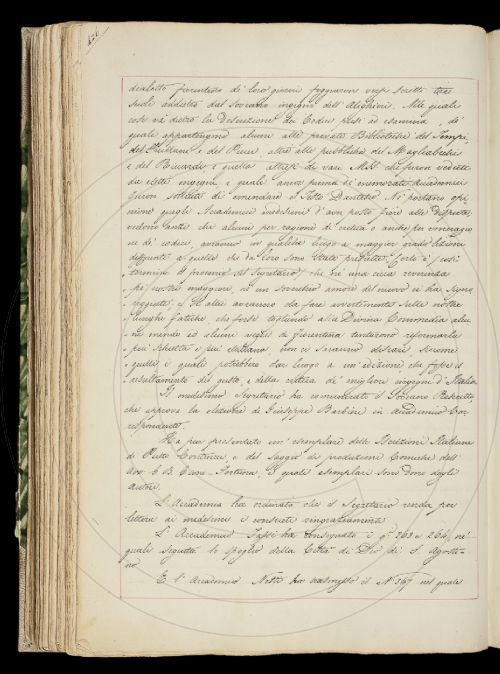 dialetto fiorentino di loro giorni
sude addietro dal Sovrano ingegno dell'Alighieri. Alle quali
cose va dietro la Descrizione dei Codici presi ad esamina, de'
quali appartengono alcuni alle private Biblioteche del Tempi,
del e del Pucci, altri alle pubbliche del Magliabechi
e del Riccardi, e quella altresì di vari MSS. che furon veduti
da eletti ingegni, i quali anco prima di enumerati Accademici
furon solleciti di emendare il Testo Dantesco. Ni portaron opi,
nione quegli Accademici medesimi d'aver posto fine alle dispute,
vedono tante che alcuni per ragione di critica o anche per
ne di codici, avranno in qualche luogo a maggior grado lezioni
differenti a quelle che da loro sono state prodotte. Certo è, così
termina il proemio del Segretario, che nè una cieca reverenda
pei nostri maggiori, nè un soverchio amore del nuovo ci ha signo,
reggiato, e Se altri avranno da fare avvertimenti sulle nostre
lunghe fatiche, che forse togliendo alla Divina Commedia alcu,
ne mende ed alcuni vezzi di fiorentina tenteranno riformarla
più schietta e più italiana, non ci saranno discari, siccome
quelli i quali potrebbero dar luogo a un'edizione che fosse il
resultamento del gusto, e della critica de' migliori ingegni d'Italia
Il medesimo Segretario ha comunicato il Sovrano Rescritto
che approva la elezione di Giuseppe Barbieri in Accademico Cor,
rispondente.
Ha poi presentato un'esemplare delle Iscrizioni Italiane
di Pietro Contrucci e del Saggio di produzioni Comiche dell'
Avv. G. B. I quali esemplari sono dono degli
autori.
L'Accademia ha ordinato che il Segretario renda per
lettera ai medesimi i consueti ringraziamenti
L'Accademico ha consegnato i q. 263 e 264, ne'
quali seguita lo spoglio della Città di Dio di S. Agosti-
no
E l'Accademico ha trasmesso il N° 347 nel quale